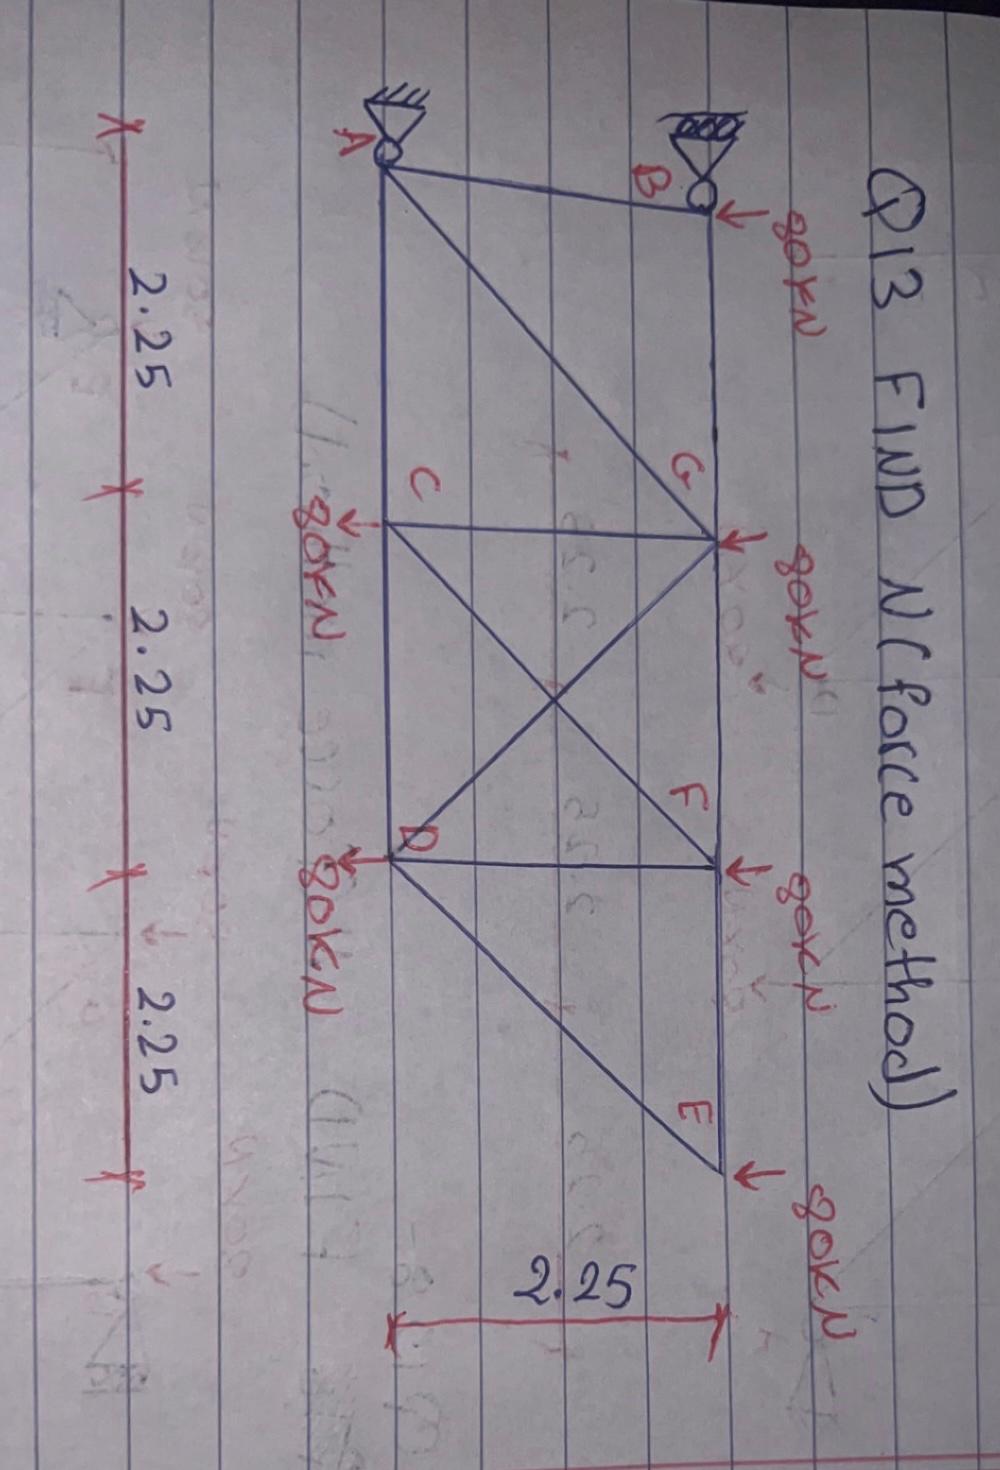 Q13 FIND N(force method)
80KN
80KN
80KN
80KN
B
G
F
E
2.25
A
C
D
80KN
80KN
2.25
2.25
2.25